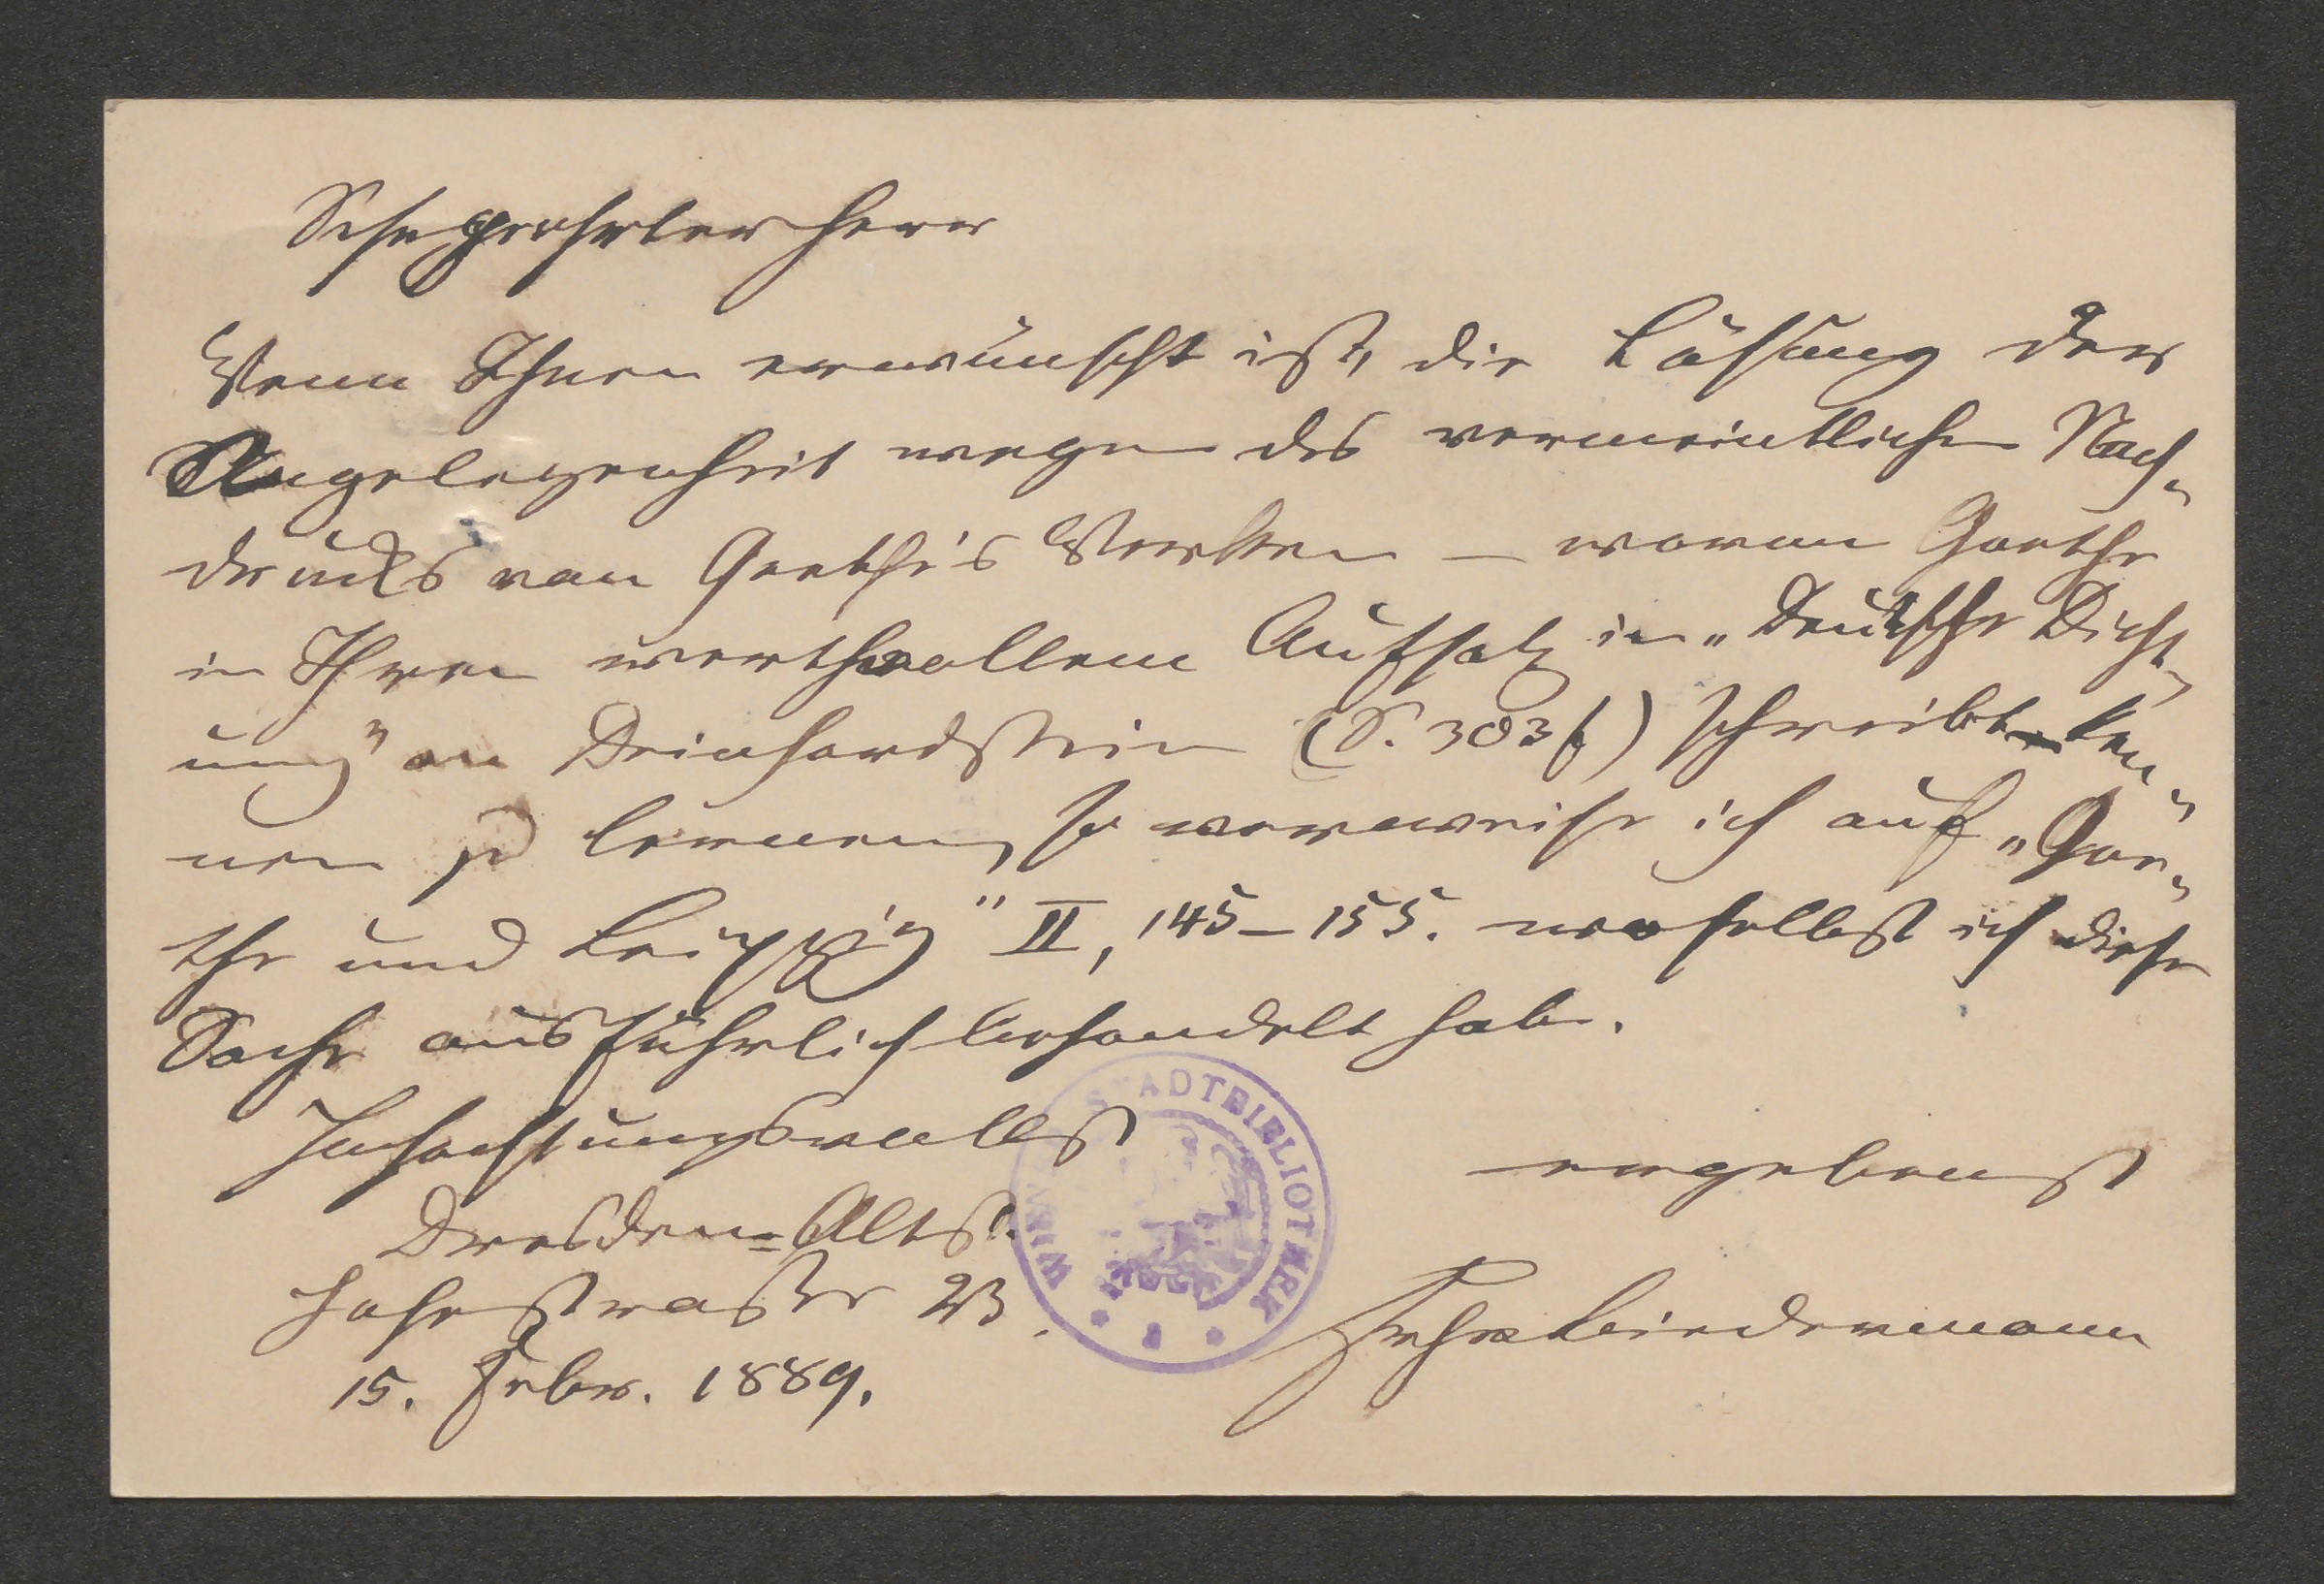 Sehr geehrter Herr
Wenn Ihnen erwünscht ist, die Lösung der
Angelegenheit wegen des vermeintlichen Nach-
drucks von Goethe's Werken — wovon Goethe
in Ihren werthvollem Aufsatz in „Deutsche Dicht-
ung" an Deinhardstein (S. 303 f) schreibt ken-
nen zu lernen, so verweise ich auf „Goe-
the und Leipzig" II, 145–155. woselbst ich diese
Sache ausführlich behandelt habe.
Hochachtungsvollst
ergebenst
Dresden-Altst.
Hohestrasse 23.
FrhvBiedermann
15. Febr. 1889.
WIEN STADTBIBLIOTHEK